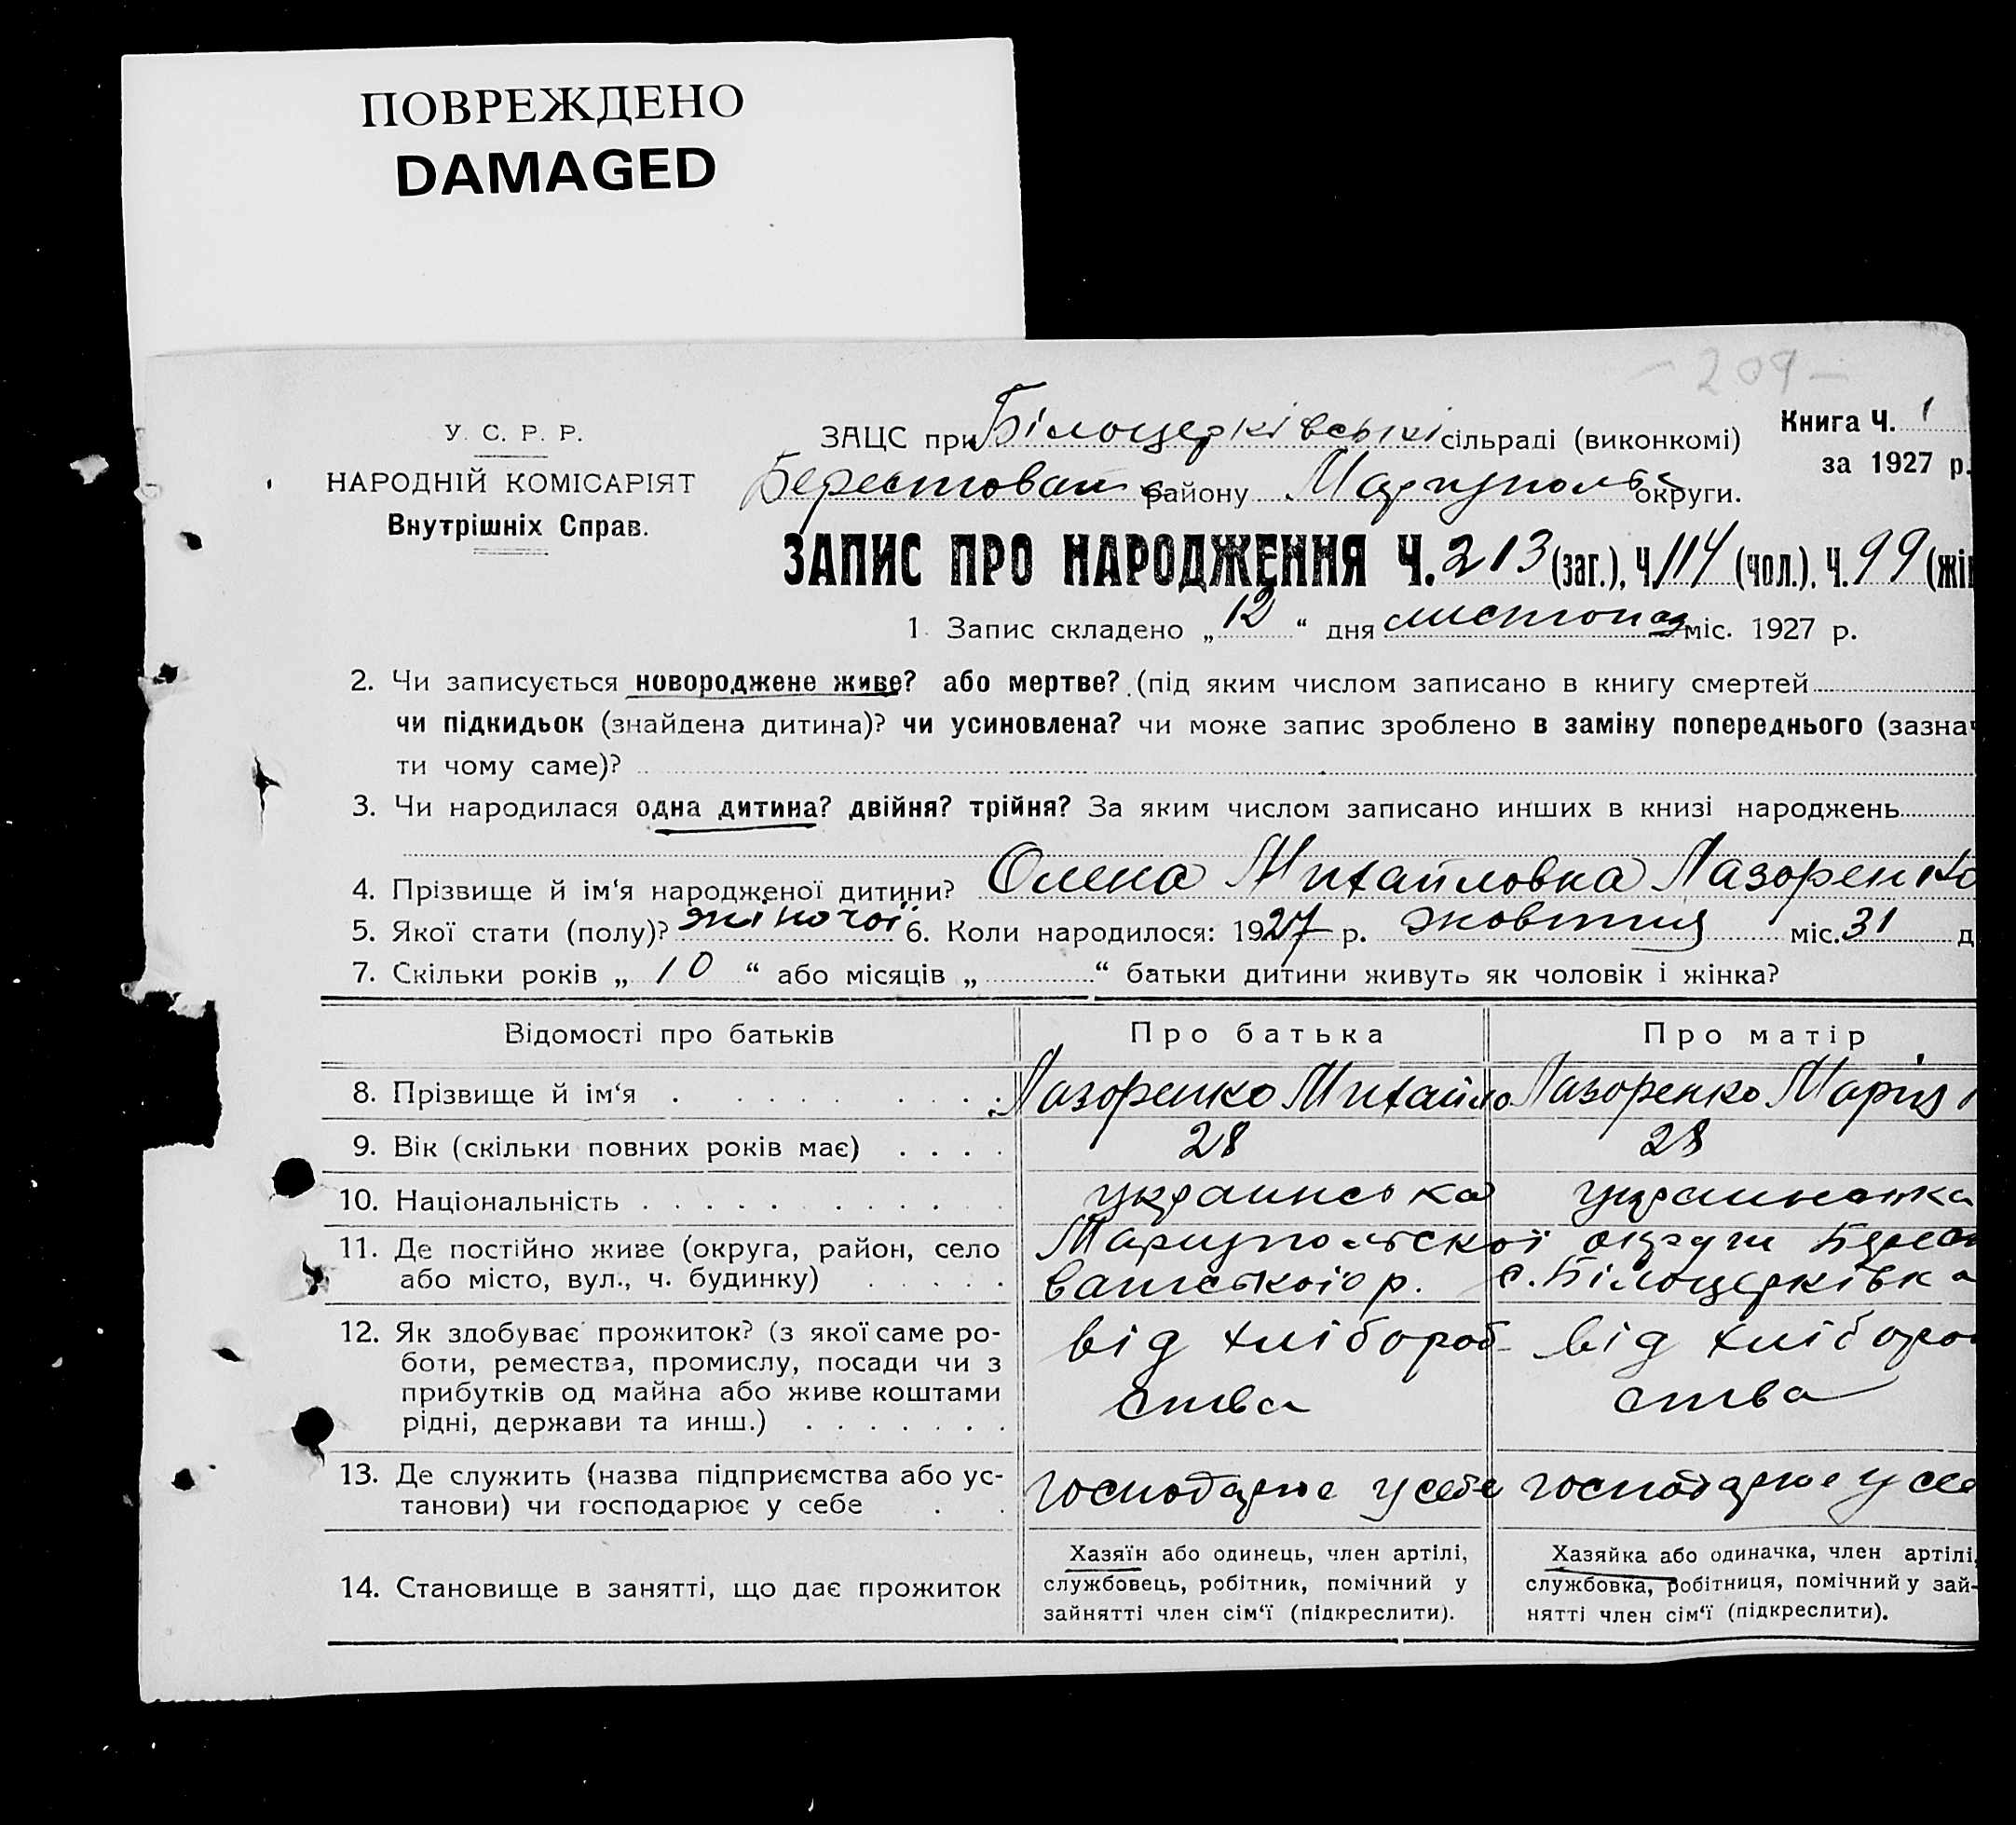 ПОВРЕЖДЕНО
DAMAGED
- 209 -
У. С. Р. Р.
НАРОДНІЙ КОМІСАРІЯТ
Внутрішніх Справ.
ЗАЦС при Білоцерківські сільраді (виконкомі)
Книга Ч. 1
за 1927 р.
району Маріуполь округи.
ЗАПИС ПРО НАРОДЖЕННЯ Ч. 213 (заг.), Ч. 114 (чол.), Ч. 99 (жін
1. Запис складено „ 12 “ дня листопад міс. 1927 р.
2. Чи записується новороджене живе? або мертве? (під яким числом записано в книгу смертей
чи підкидьок (знайдена дитина)? чи усиновлена? чи може запис зроблено в заміну попереднього (зазнач
ти чому саме)?
3. Чи народилася одна дитина? двійня? трійня? За яким числом записано инших в книзі народжень
4. Прізвище й ім‘я народженої дитини? Олена Михайловна Лазоренко
5. Якої стати (полу)? жіночої 6. Коли народилося: 1927 р. жовтня міс. 31 д
7. Скільки років „ 10 “ або місяців „ “ батьки дитини живуть як чоловік і жінка?
Відомості про батьків Про батька Про матір
8. Прізвище й ім‘я Лазоренко Михайло Лазоренко Марія
9. Вік (скільки повних років має) 28 28
10. Національність украинська украинка
11. Де постійно живе (округа, район, село Мариупольскої округи Берест
або місто, вул., ч. будинку) р. с. Білоцерківка
12. Як здобуває прожиток? (з якої саме ро-
боти, ремества, промислу, посади чи з від хлібороб- від хлібороб
прибутків од майна або живе коштами ства ства
рідні, держави та инш.)
13. Де служить (назва підприємства або ус-
танови) чи господарює у себе господарює у себе господарює у себе
14. Становище в занятті, що дає прожиток
Хазяїн або одинець, член артілі,
службовець, робітник, помічний у
зайнятті член сім‘ї (підкреслити).
Хазяйка або одиначка, член артілі,
службовка, робітниця, помічний у зай-
нятті член сім‘ї (підкреслити).